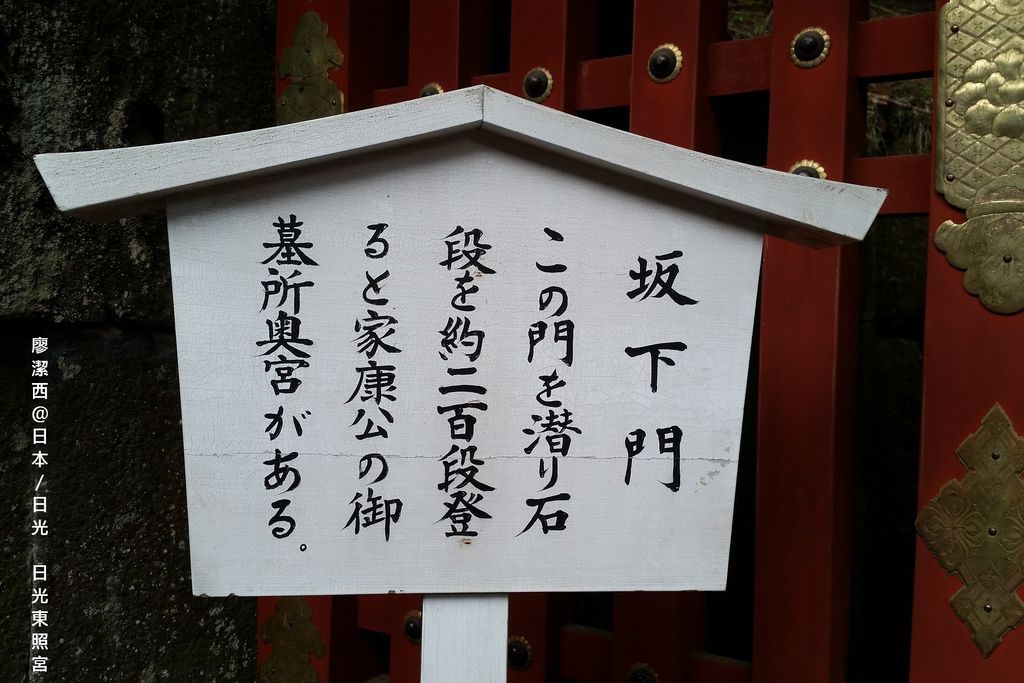 坂下門
この門を潜り石
段を約二百段登
ると家康公の御
墓所奥宮がある。
廖潔西@日本/日光 日光東照宮